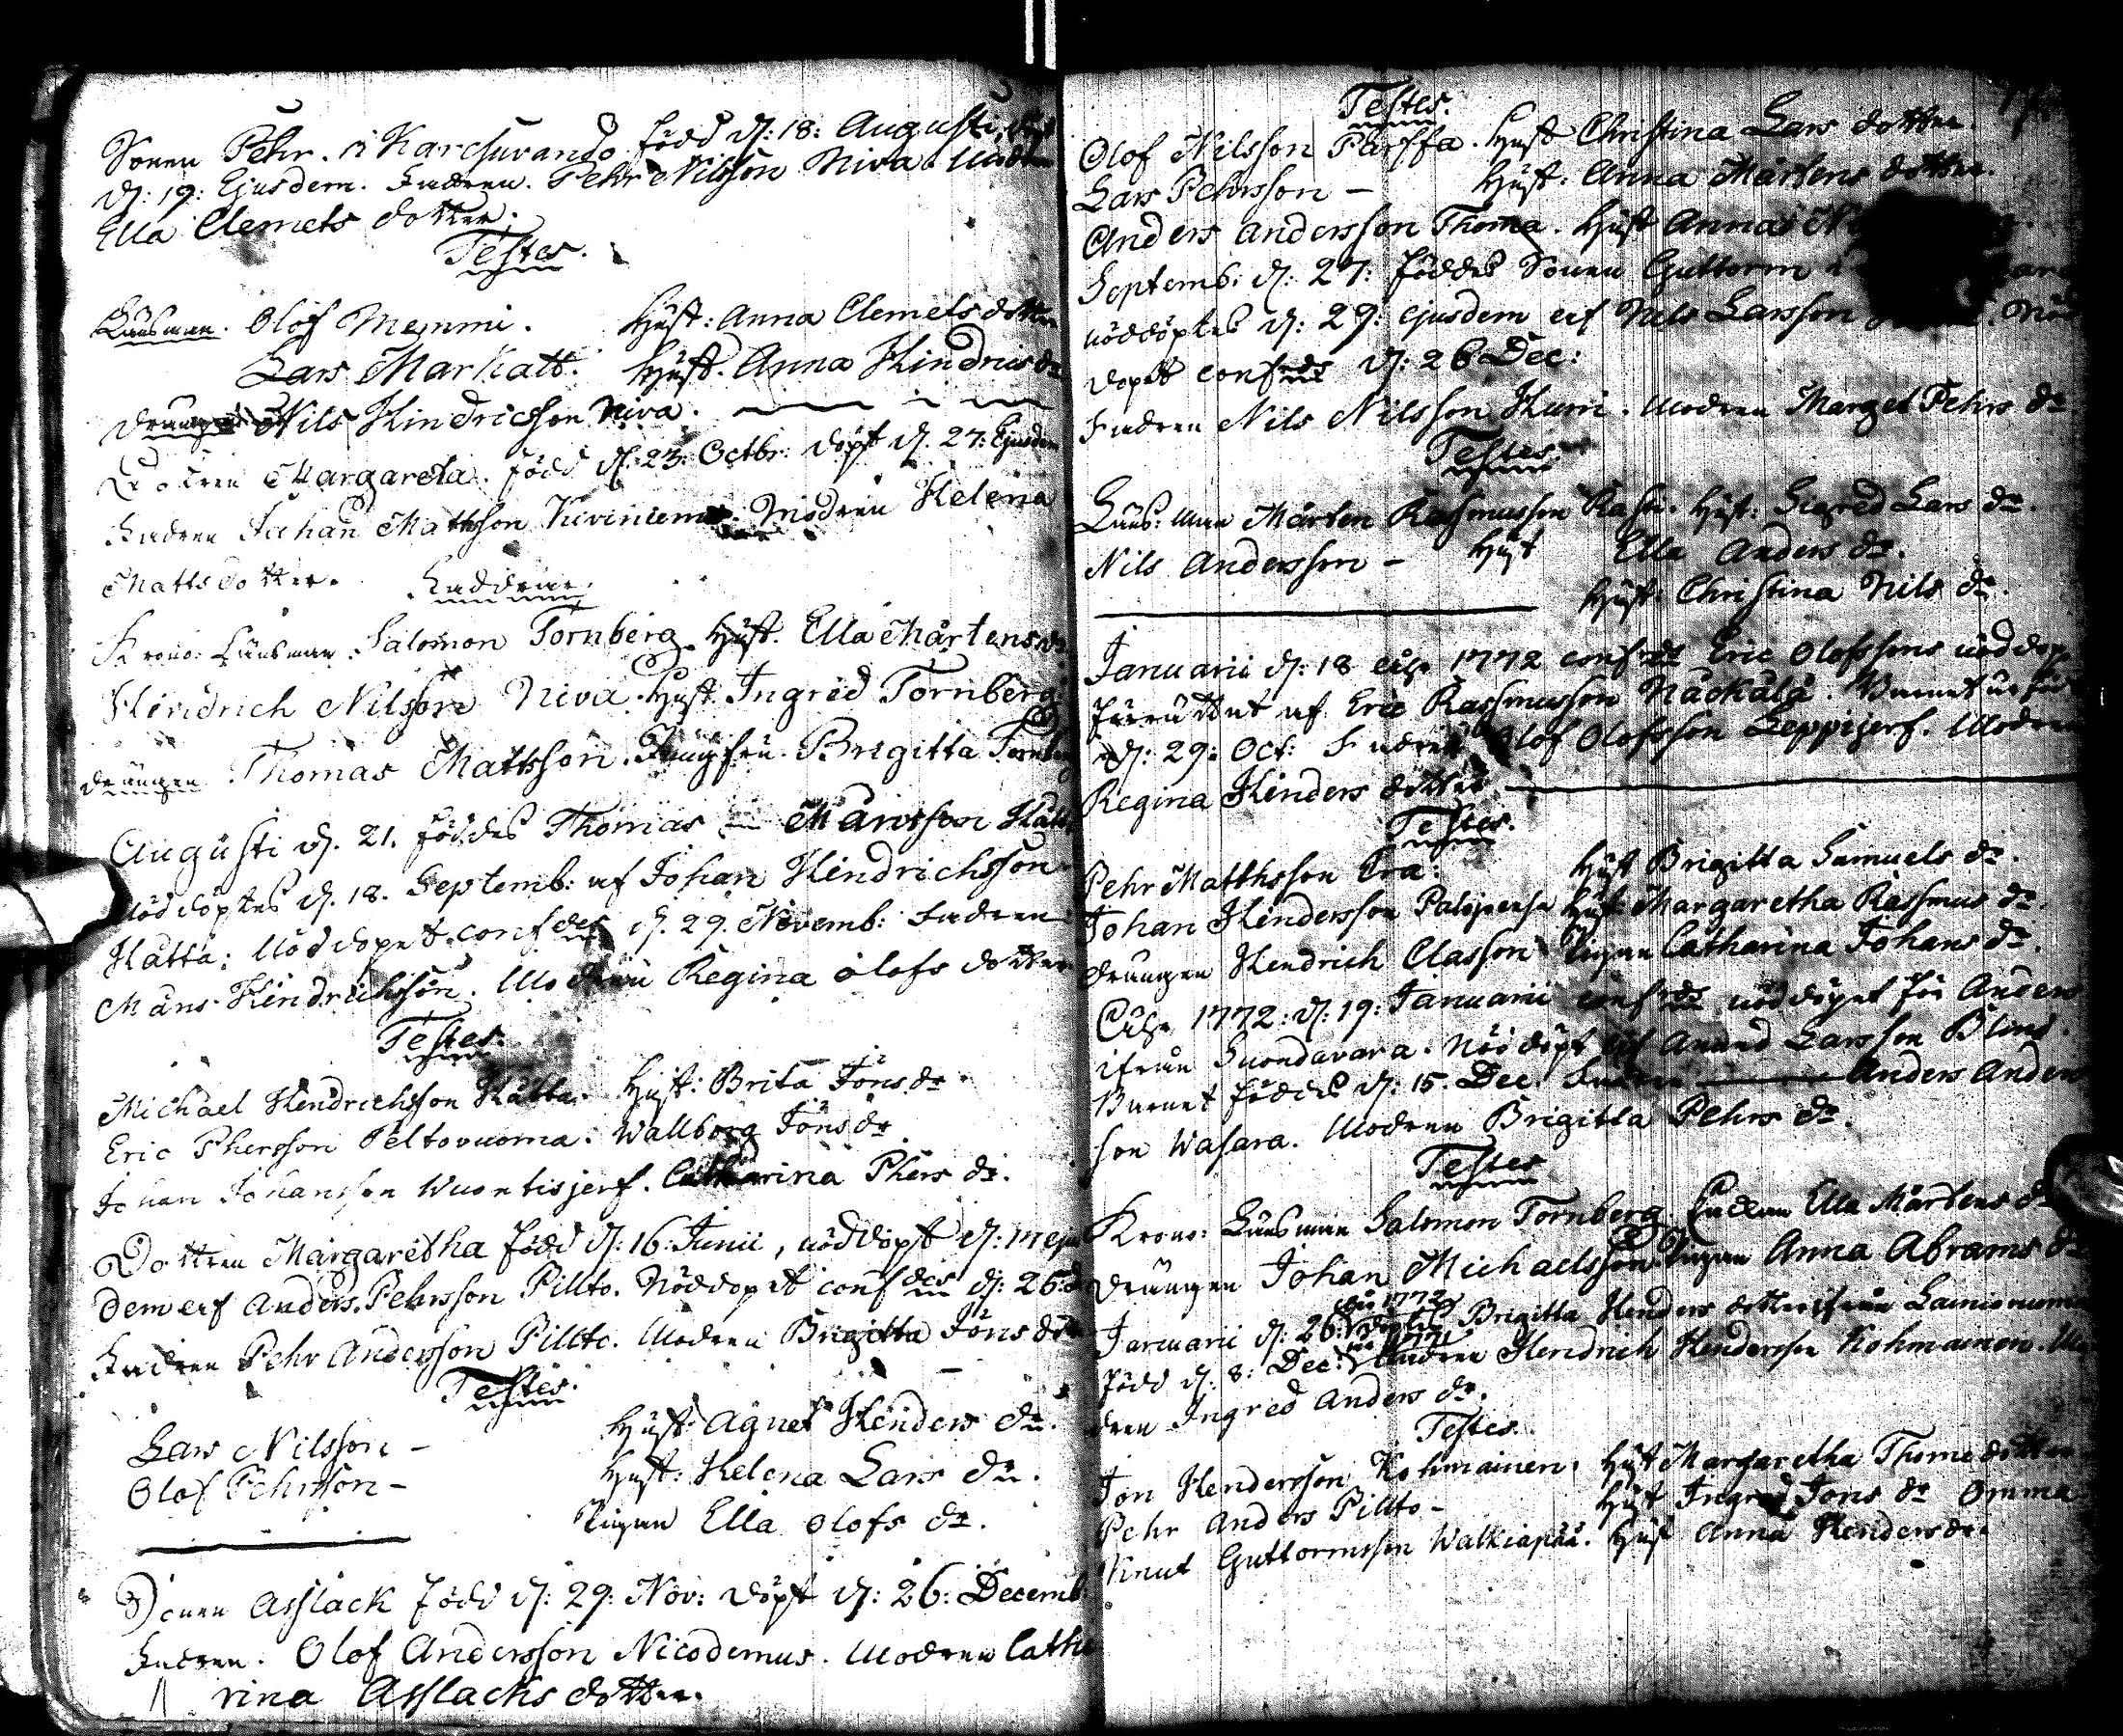 Sonen Pehr. i Karesuvando född d: 18: Augusti, döpt
d: 19: Ejusdem. Fadren. Pehr Nilsson Niva. Modren
Ella Clemets dotter.
Testes.
Länsman. Olof Memmi. Hust: Anna Clemets dotter
Lars Markatt. Hust. Anna Hindrics dr
Drängen Nils Hindricsson Niva.
Dottren Margareta. född d. 23. Octbr. döpt d. 27: Ejusdem
Fadren Johan Mattsson Kiviniemi. Modren Helena
Matts dotter. Faddrar.
Krono: Länsman. Salomon Tornberg. Hust. Ella Mårtens dr
Hindrich Nilsson Niva. Hust Ingrid Tornberg
drängen Thomas Mattsson. Jungfru. Brigitta Tornberg
Augusti d. 21. föddes Thomas Månsson Hatta
Nöddöptes d. 18. Septemb: af Johan Hindrichsson
Hatta: Nöddopet confdes d. 29. Novemb: Fadren
Måns Hindrichsson. Modren Regina Olofs dotter
Testes.
Michael Hendrichsson Hatta. Hust: Brita Jöns dr.
Eric Phersson Peltovuoma. Wallborg Jöns dr
Johan Johansson Wuontisjerf. Catharina Phers dr.
Dottren Margaretha född d: 16: Junii, nöddöpt d: 17 ejus
dem af Anders. Pehrsson Pillto. Nöddopet confdes d: 26: d
Fadren Pehr Andersson Pillto. Modren Brigitta Jöns dr
Testes.
Lars Nilsson - Hust: Agnet Henders dr.
Olof Pehrsson - Hust: Helena Lars dr.
Pigan Ella Olofs dr.
Sonen Asslack född d: 29: Nov: döpt d: 26: Decemb.
Fadren. Olof Andersson Nicodemus. Modren Catha
rina Asslacks dotter.
Testes.
Olof Nilsson Parffa. Hust Christina Lars dotter.
Lars Pehrsson - Hust: Anna Mårtens dotter.
Anders Andersson Thoma. Hust Anna
Septemb: d: 27: föddes Sonen Guttorm
nöddöptes d: 29: ejusdem af Nils Larsson
dopet confdes d: 26 Dec:
Fadren Nils Nilsson Kurri. Modren Marget Pehrs dr
Testes.
Läns: man Mårten Rasmusson Rasti. Hust: Sigred Lars dr.
Nils Andersson - Hust Ella Anders dr.
Hust: Christina Nils dr.
Januarii d: 18 1772 confdes Eric Olofssons nöddop
förrättat af Eric Rasmusson Näckälä. Barnet är föd
d: 29: Oct: Fadren Olof Olofsson Leppijerf. Modren
Regina Henders dotter
Testes.
Pehr Matthsson Hust Brigitta Samuels dr.
Johan Hindersson Palojensu Hust Margaretha Rasmus dr.
drängen Hendrich Classon Pigan Catharina Johans dr.
1772: d: 19: Januarii confdes nöddopet för Anders
ifrån Suondavara. Nöddöpt af Amund Larsson Blind.
Barnet föddes d: 15. Dec. Fadren Anders Anders
son Wasara. Modren Brigitta Pehrs dr.
Testes
Krono: Länsman Salomon Tornberg. Ella Mårtens dr
drängen Johan Michaelsson. Pigan Anna Abrams dr
Januarii d: 26: 1772 döptes Brigitta Henders dotter ifrån Lainio
född d: 8: Dec: 1771 Fadren Hendrich Hendersson Kohmainen. Mo
dren Ingred Anders dr.
Testes.
Jon Hendersson Kohmainen. Hust Margaretha Thome dotter
Pehr Anders Pillto - Hust Ingred Jons dr Omma
Knut Guttormsson Walkiapää. Hust Anna Henders dr.